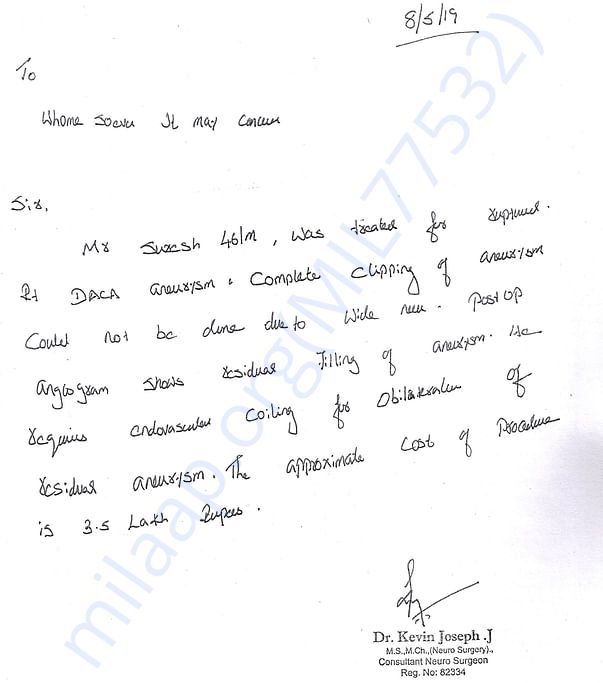 8/5/19
To
Whome Soever It may Concern
Sir,
Mr Suresh 46/M, was treated for ruptured.
Rt DACA aneurysm. Complete Clipping of aneurysm
Could not be done due to wide neck. Post OP
angiogram shows residual filling of aneurysm. He
requires endovascular coiling for Obliteration of
residual aneurysm. The approximate cost of Procedure
is 3.5 Lakh Rupees.
Dr. Kevin Joseph .J
M.S.,M.Ch.,(Neuro Surgery).,
Consultant Neuro Surgeon
Reg. No: 82334
milaap.org(MIL77532)